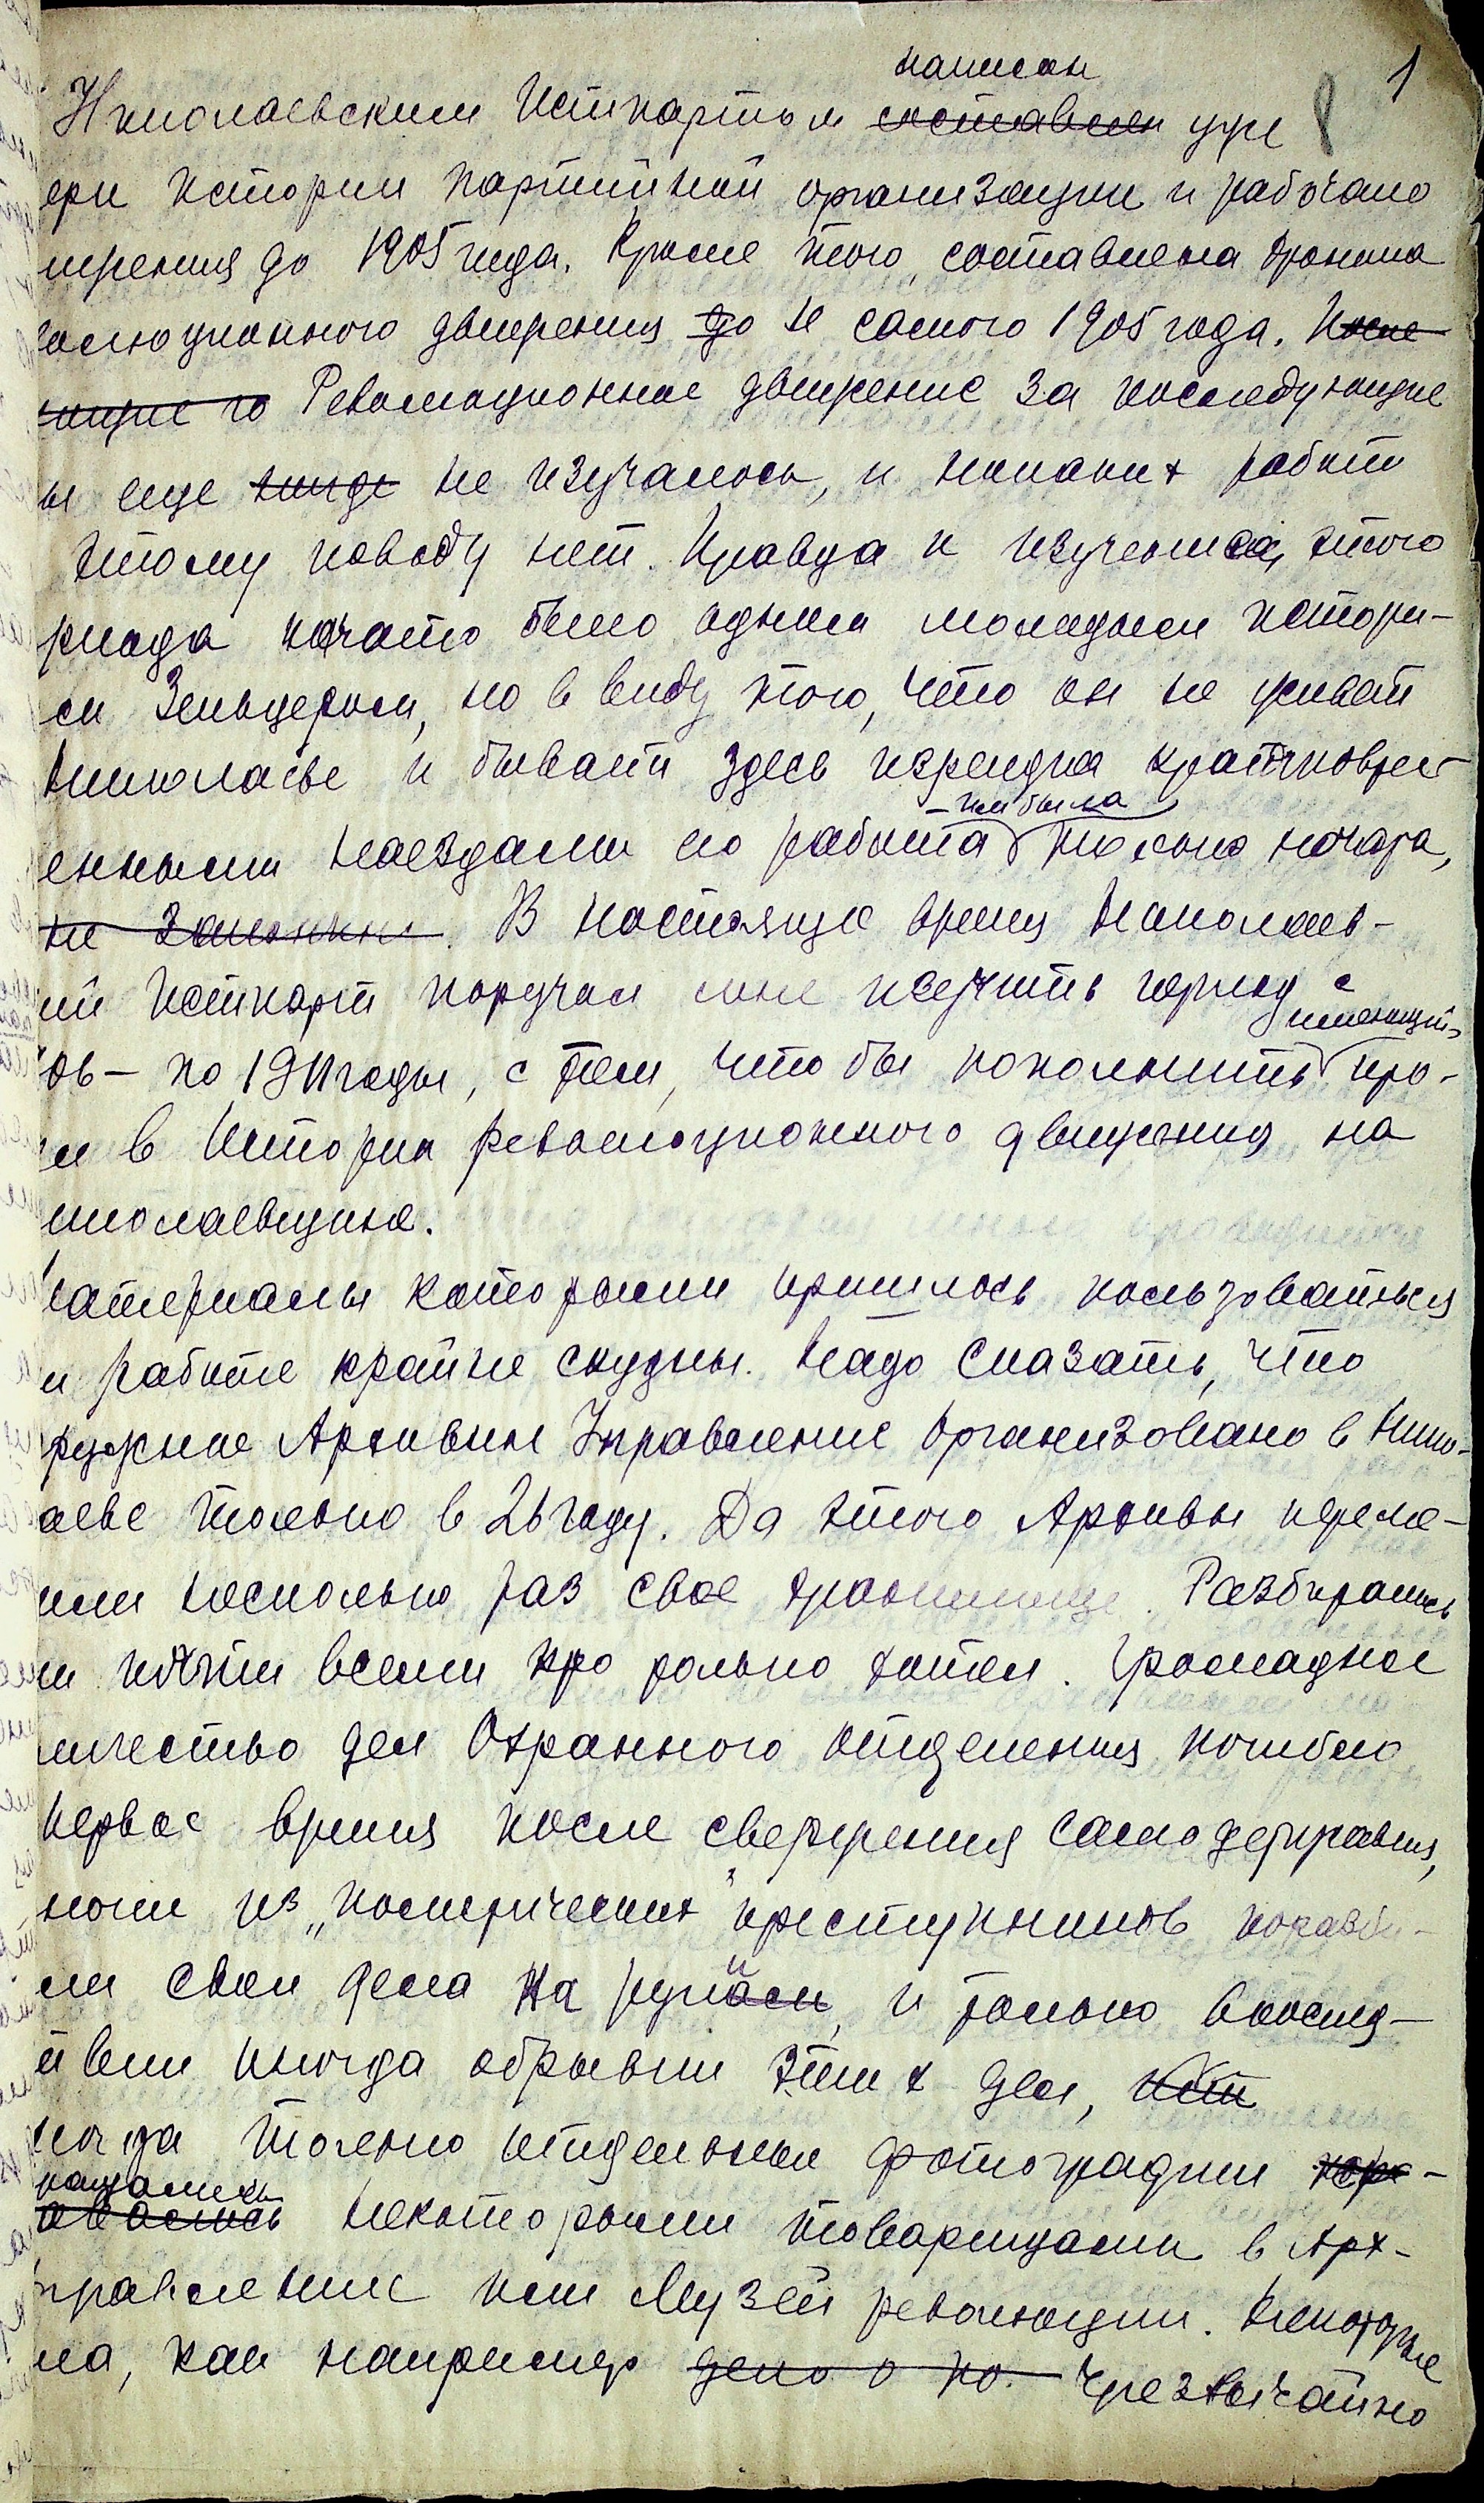 1
написан
Николаевским Истпартом составлен уже
ерк истории партийной организации и рабочего
ижения до 1905 года. Кроме того, составлена хроника
олюционного движения до и самого 1905 года. После
ющие го Революционное движение за последующие
ы еще нигде не изучалось, и никаких работ
этому поводу нет. Правда к изучению этого
риода начато было одним молодым истори-
ом Зельцером, но в виду того, что он не живет
Николаеве и бывает здесь изредка кратковрем
енными наездами его работа им была только начата,
не закончен. В настоящее время Николаев-
ий Истпарт поручил мне изучить период с
имеющий
06 — по 1911 годы, с тем, что бы пополнить про-
л в Истории революционного движения на
иколаевщине.
атериалы которыми пришлось пользоваться
и работе крайне скудны. Надо сказать, что
ружное Архивное Управление организовано в Нико-
аеве только в 26 году. До этого Архивы переме-
или несколько раз свое хранилище. Разбирались
и почти всеми кто только хотел. Громадное
личество дел Охранного отделения погибло
первое время после свержения самодержавия,
ногие из „политических" преступников
ли свои дела на руки, и только впослед-
ивии иногда обрывки этих дел,
ногда только отдельные фотографии
авались некоторыми товарищами в Арх-
правление или Музей революции. Некоторые
ла, как например дело о по. Чрезвычайно